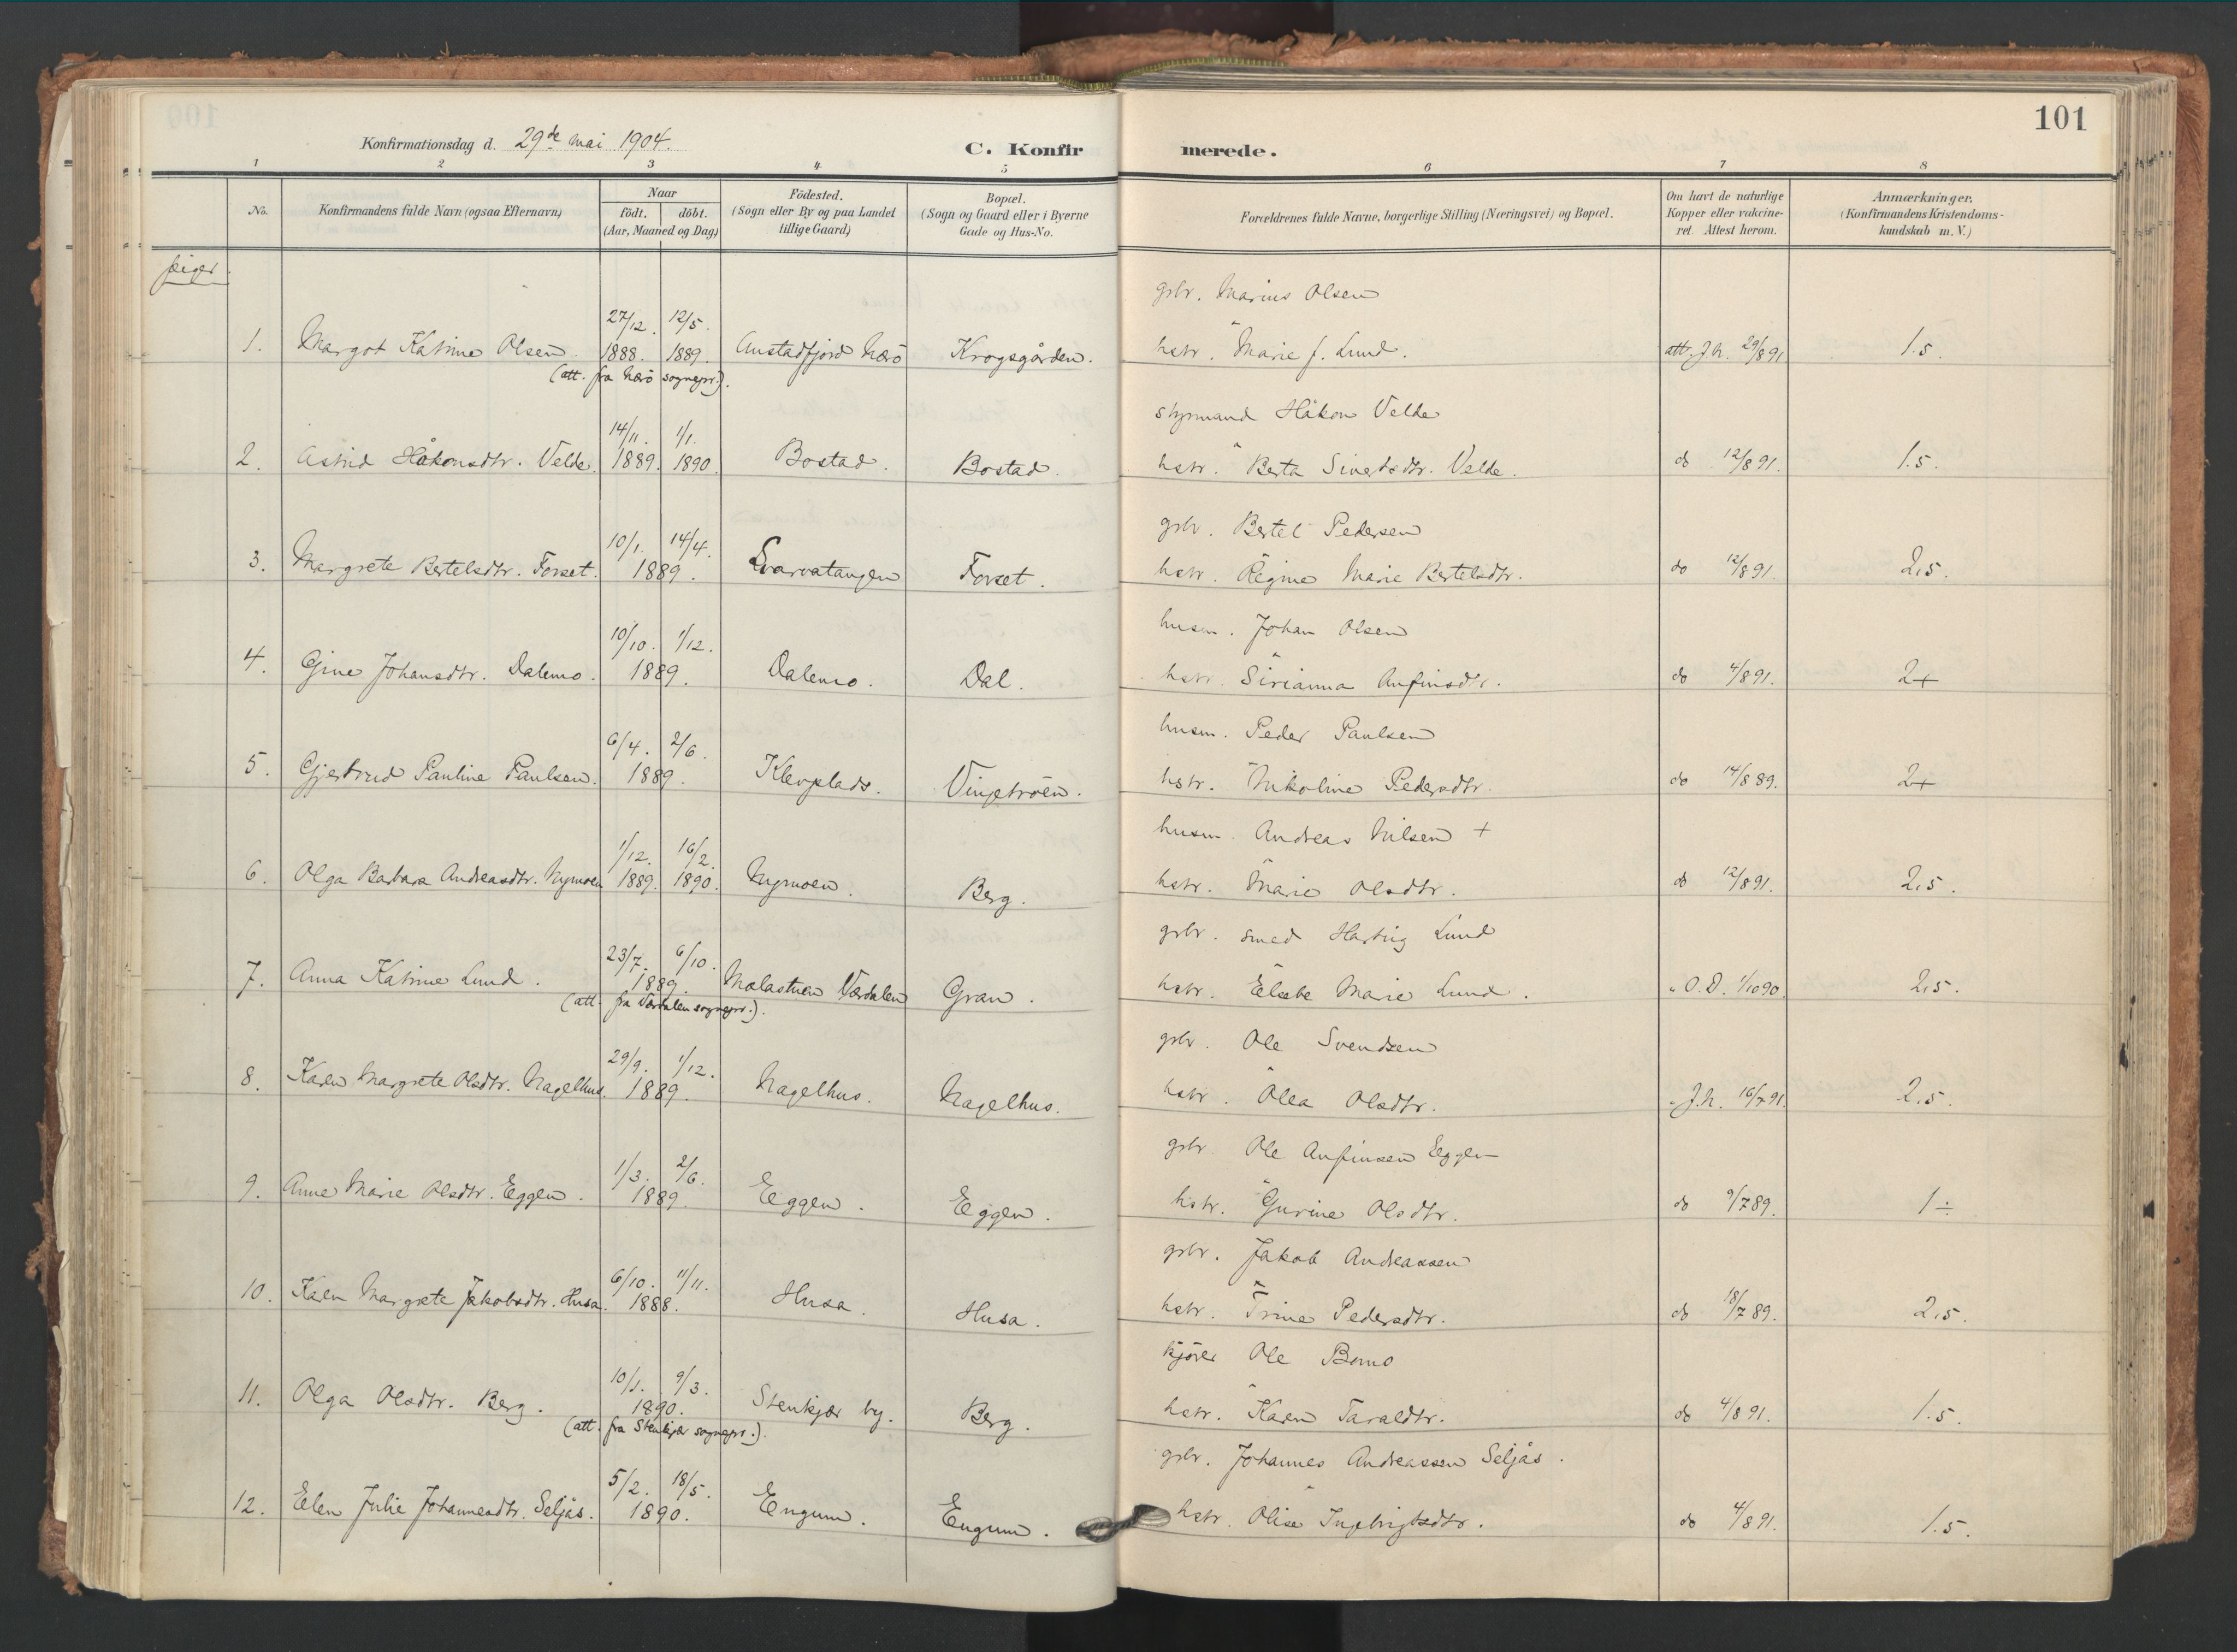 101
Konfirmationsdag d. 29de mai 1904.
C. Konfirmerede.
1 2 3 4 5 6 7 8
No.
Konfirmandens fulde Navn (ogsaa Efternavn)
Naar
födt. döbt.
(Aar, Maaned og Dag)
Födested.
(Sogn eller By og paa Landet
tillige Gaard)
Bopæl.
(Sogn og Gaard eller i Byerne
Gade og Hus-No.
Forældrenes fulde Navne, borgerlige Stilling (Næringsvei) og Bopæl.
Om havt de naturlige
Kopper eller vakcine-
ret. Attest herom.
Anmærkninger.
(Konfirmandens Kristendoms-
kundskab m. V.)
piger.
grbr. Marius Olsen
27/12. 12/5.
1. Margot Katrine Olsen. 1888. 1889. Austadfjord Nærö Krogsgården. hstr. Marie f. Lund. att. J.N. 29/8 91 1.5.
(att. fra Nærö sognepr.).
styrmand Håkon Velde
14/11. 1/1.
2. Astrid Håkonsdtr. Velde. 1889. 1890. Bostad. Bostad. hstr. Berta Sivertsdtr. Velde. do 12/8 91. 1.5.
grbr. Bertel Pedersen
10/1. 14/4.
3. Margrete Bertelsdtr. Forset. 1889. Svarvatangen Forset. hstr. Regine Marie Bertelsdtr. do 12/8 91. 2,5.
husm. Johan Olsen
10/10. 1/12.
4. Gine Johansdtr. Dalemo. 1889. Dalemo. Dal. hstr. Sirianna Anfinsdtr. do 4/8 91. 2+
husm. Peder Paulsen
6/4. 2/6.
5. Gjertrud Pauline Paulsen. 1889. Klevplads. Vinjetröen. hstr. Nikoline Pedersdtr. do 14/8 89. 2+
husm. Andreas Nilsen +
1/12. 16/2.
6. Olga Barbara Andreasdtr. Nymoen 1889. 1890. Nymoen. Berg. hstr. Marie Olsdtr. do 12/8 91. 2,5.
grbr. smed Hartvig Lund
23/7. 6/10.
7. Anna Katrine Lund. 1889. Molastuen Værdalen Gran. hstr. Elsebe Marie Lund. " O.D. 1/10 90. 2,5.
(att. fra Værdalen sognepr.).
grbr. Ole Svendsen
29/9. 1/12.
8. Karen Margrete Olsdtr. Nagelhus. 1889. Nagelhus. Nagelhus. hstr. Olea Olsdtr. " J.N. 16/7 91. 2.5.
grbr. Ole Anfinsen Eggen
1/3. 2/6.
9. Anne Marie Olsdtr. Eggen. 1889. Eggen. Eggen. hstr. Gurine Olsdtr. do 9/7 89. 1÷
grbr. Jakob Andreassen
6/10. 11/11.
10. Karen Margrete Jakobsdtr. Husa. 1888. Husa. Husa. hstr. Trine Pedersdtr. do 18/7 89. 2.5.
kjörer Ole Bomo
10/1. 9/3.
11. Olga Olsdtr. Berg. 1890. Stenkjær by. Berg. hstr. Karen Taraldtr. do 4/8 91. 1.5.
(att. fra Stenkjær sognepr.).
grbr. Johannes Andreassen Seljås.
5/2. 18/5.
12. Elen Julie Johannesdtr. Seljås. 1890. Engum. Engum. hstr. Olise Ingebrigtsdtr. do 4/8 91. 1.5.